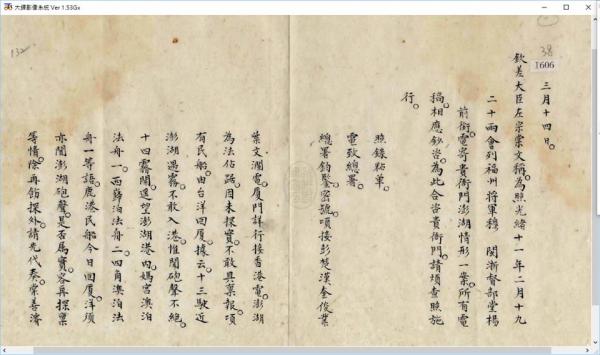 大鐸影像系統 Ver 1.53Gx
38
1606
三月十四日。
欽差大臣左宗棠文稱。為照光緒十一年二月十九
二十兩會列福州將軍穆 閩浙督部堂楊
前銜。電寄貴衙門澎湖情形一案。所有電
稿。相應鈔咨。為此合咨貴衙門。請煩查照施
行。
照錄粘單。
電致總署。
總署鈞鑒。密。號。頃接彭楚漢全俊業
葉文瀾電。廈門詳行接香港電。澎湖
為法佔踞。因未探實。不敢具稟報。頃
有民船由台洋回廈。據云。十三駛近
澎湖。遇霧不敢入港。惟聞砲聲不絕。
十四霧開。遙望澎湖港內。媽宮澳泊
法舟一。西嶼泊法舟二。四角澳泊法
舟一等語。鹿港民船今日回廈。洋
亦聞澎湖砲聲。是否屬實。容再探稟
等情。除再飭探外。請先代奏。棠善濬
132